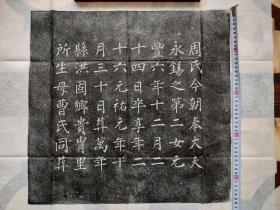 周氏今朝奉大夫
永錫之第二女元
豐六年十二月二
十四日卒享年二
十六元祐元年十
月三十日葬萬年
縣洪固鄉貴胄里
所生母曹氏同葬